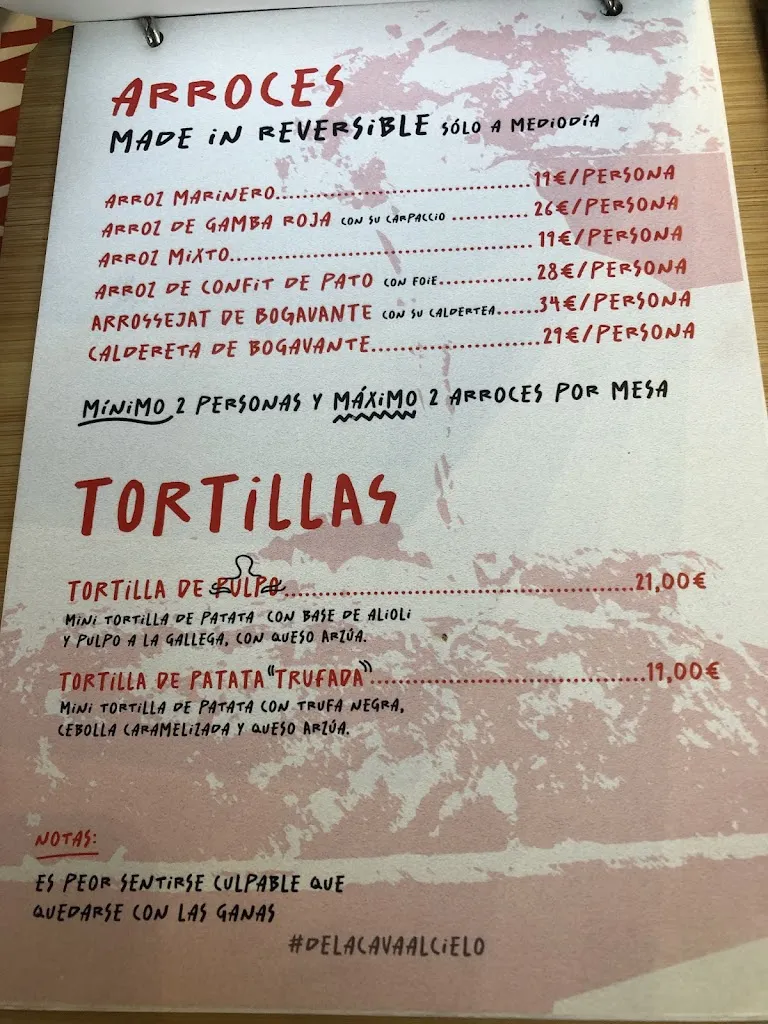 ARROCES
MADE iN REVERSiBLE SÓLO A MEDiODÍA
ARROZ MARiNERO..............................................19€/PERSONA
ARROZ DE GAMBA ROJA CON SU CARPACCiO ..............26€/PERSONA
ARROZ MiXTO.....................................................19€/PERSONA
ARROZ DE CONFiT DE PATO CON FOiE.................28€/PERSONA
ARROSSEJAT DE BOGAVANTE CON SU CALDERTEA.......34€/PERSONA
CALDERETA DE BOGAVANTE..............................29€/PERSONA
MÍNiMO 2 PERSONAS Y MÁXiMO 2 ARROCES POR MESA
TORTiLLAS
TORTiLLA DE PULPO..................................................21,00€
MiNi TORTiLLA DE PATATA CON BASE DE ALiOLi
Y PULPO A LA GALLEGA, CON QUESO ARZÚA.
TORTiLLA DE PATATA "TRUFADA"........................................19,00€
MiNi TORTiLLA DE PATATA CON TRUFA NEGRA,
CEBOLLA CARAMELiZADA Y QUESO ARZÚA.
NOTAS:
ES PEOR SENTiRSE CULPABLE QUE
QUEDARSE CON LAS GANAS
#DELACAVAALCiELO